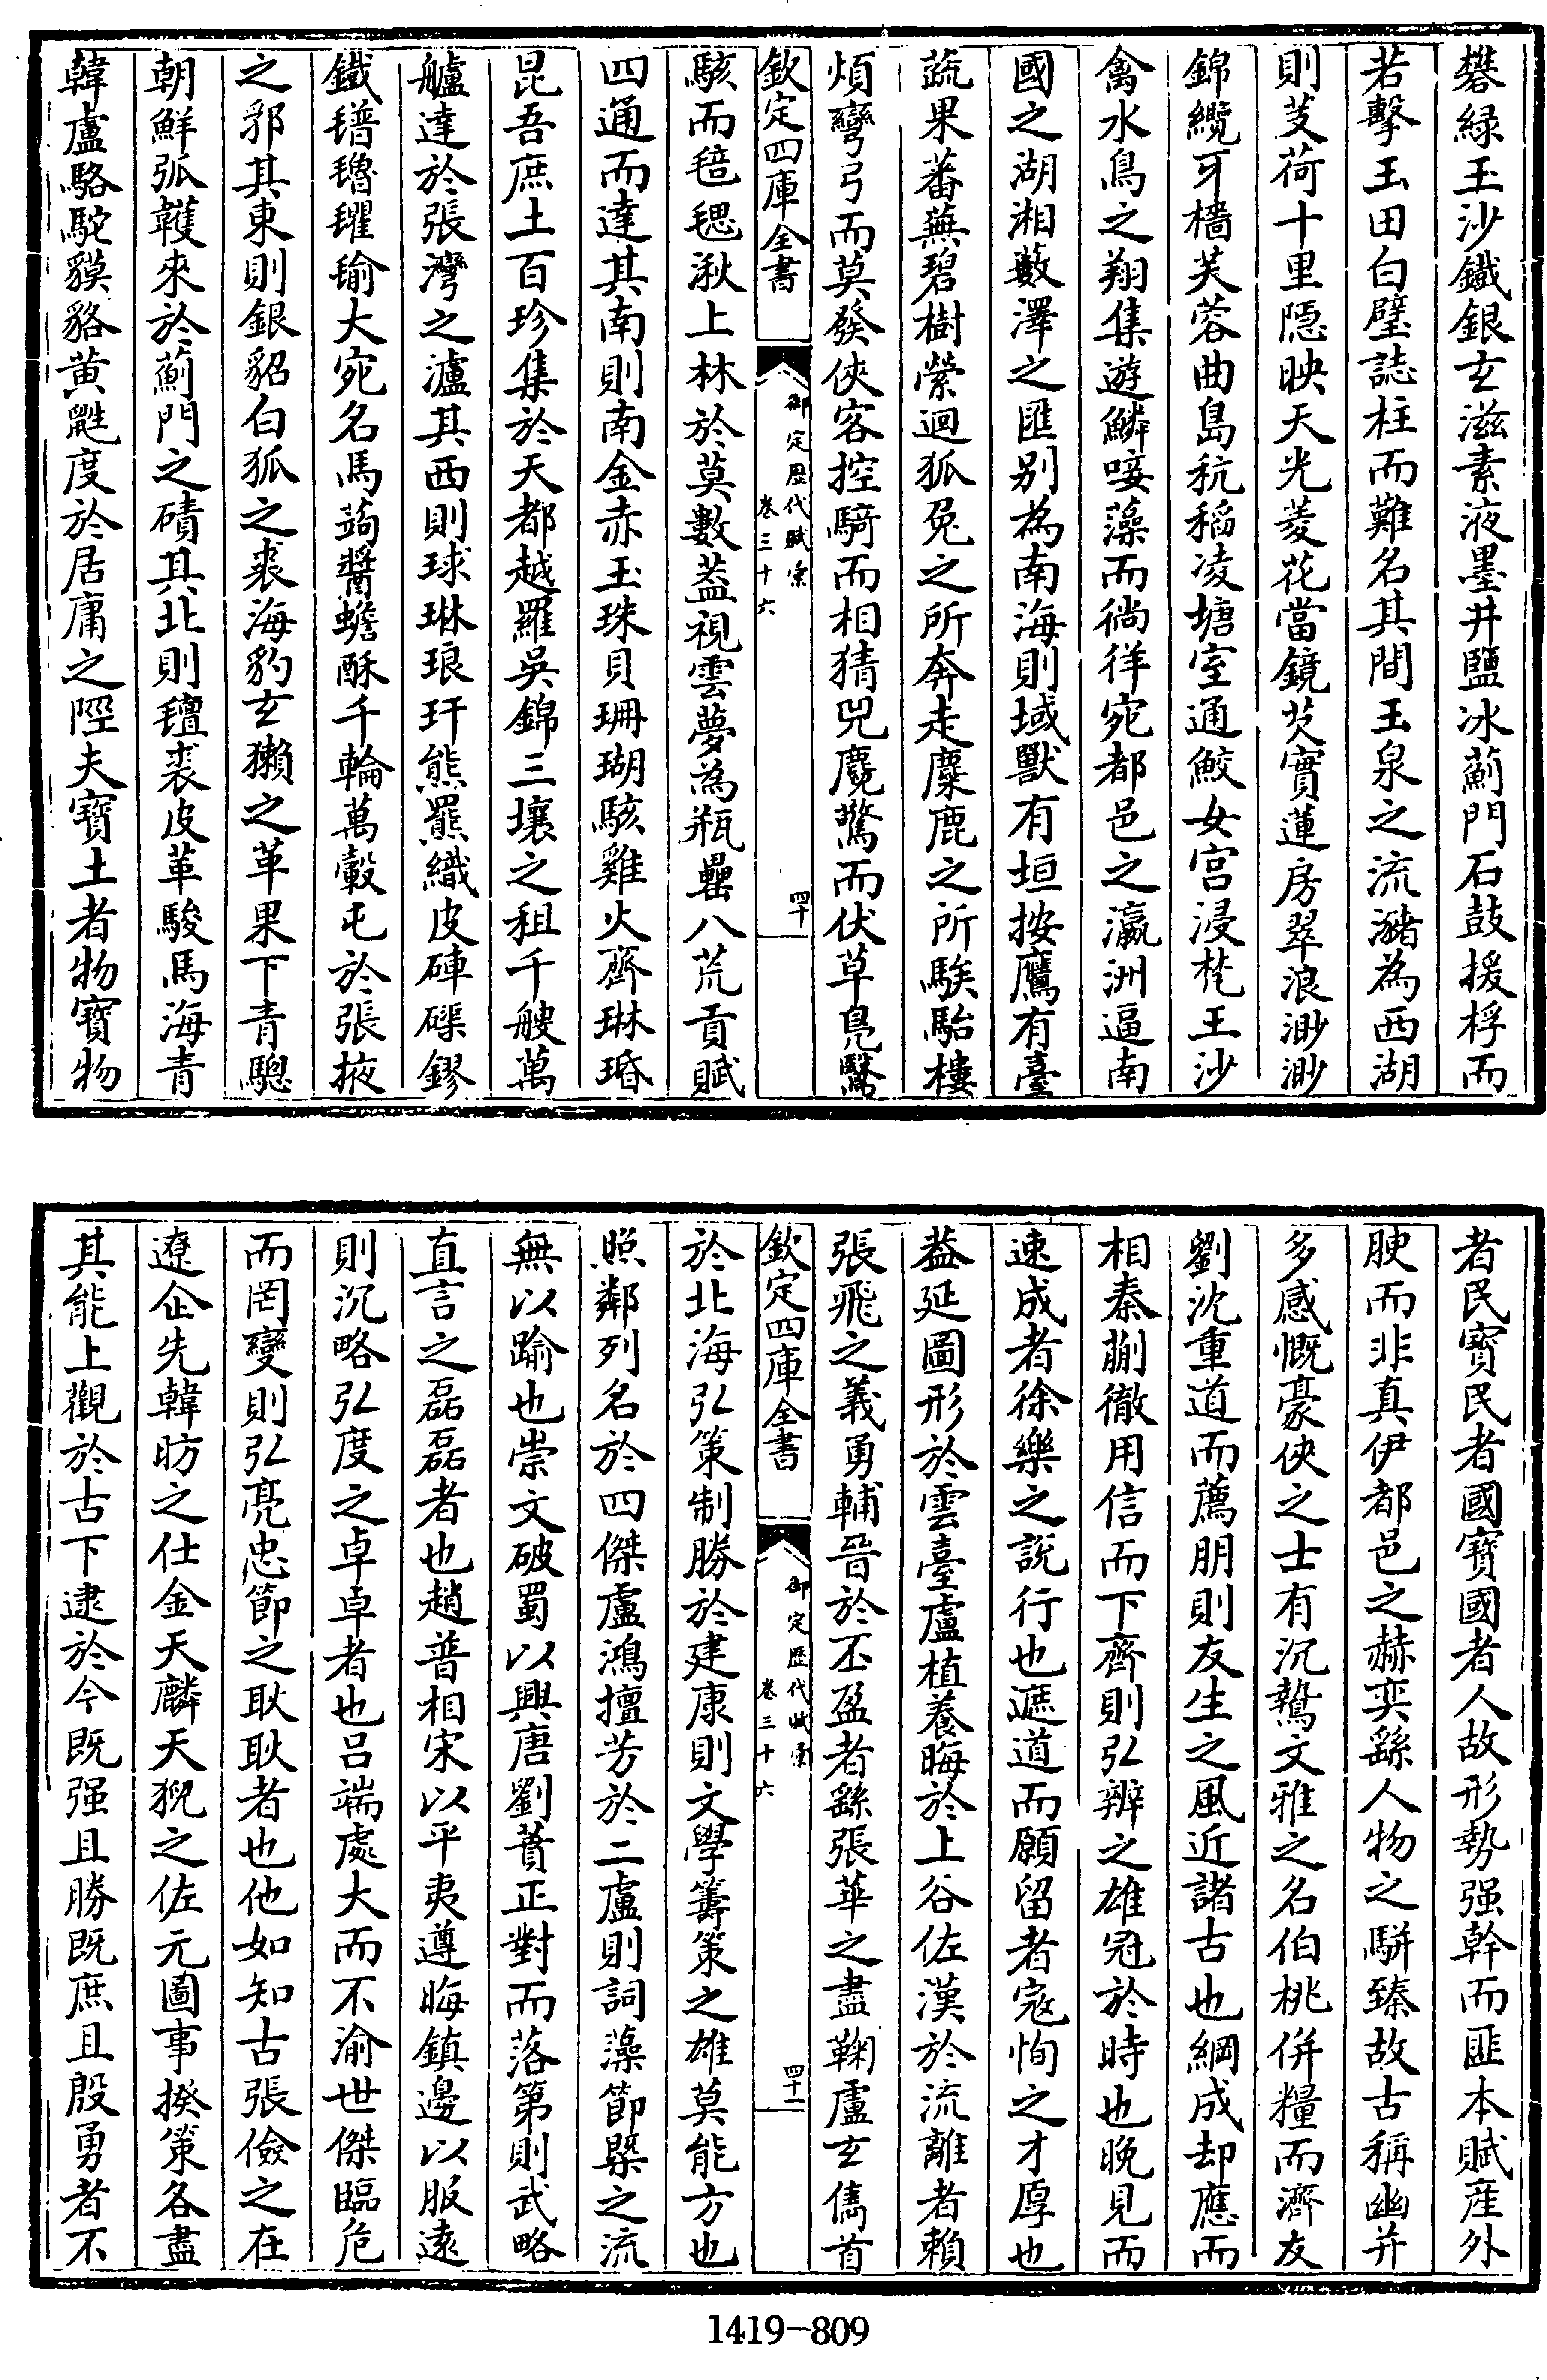 礬緑玉沙鐵銀玄滋素液墨井鹽冰薊門石鼓援桴而
若擊玉田白璧誌柱而難名其間玉泉之流瀦為西湖
則芰荷十里隠映天光菱花當鏡芡實蓮房翠浪渺渺
錦纜牙檣芙蓉曲島秔稻凌塘室通鮫女宫浸梵王沙
禽水鳥之翔集遊鱗唼藻而徜徉宛都邑之瀛洲逼南
國之湖湘數澤之匯别為南海則域獸有垣按鷹有臺
蔬果蕃蕪碧樹縈迴狐兔之所奔走麋鹿之所騃駘樓
煩彎弓而莫發俠客控騎而相猜兕麑驚而伏草鳬鷖
欽定四庫全書
御定歴代賦彙
卷三十六
四十
駭而毰毸湫上林於莫數葢視雲夢為瓶罍八荒貢賦
四通而達其南則南金赤玉珠貝珊瑚駭雞火齊琳瑉
昆吾庶土百珍集於天都越羅吳錦三壤之租千艘萬
艫達於張灣之瀘其西則球琳琅玕熊羆織皮硨磲鏐
鐵氆氌㲲毹大宛名馬蒟醬蟾酥千輪萬轂屯於張掖
之郛其東則銀貂白狐之裘海豹玄獺之革果下青驄
朝鮮弧韄來於薊門之磧其北則氊裘皮革駿馬海青
韓盧駱駝貘貉黄鼪度於居庸之陘夫寶土者物寶物
者民寶民者國寶國者人故形勢强幹而匪本賦産外
腴而非真伊都邑之赫奕繇人物之駢臻故古稱幽并
多感慨豪俠之士有沉鷙文雅之名伯桃併糧而濟友
劉沈重道而薦朋則友生之風近諸古也綱成却應而
相秦蒯徹用信而下齊則弘辨之雄冠於時也晚見而
速成者徐樂之說行也遮道而願留者寇恂之才厚也
葢延圖形於雲臺盧植養晦於上谷佐漢於流離者賴
張飛之義勇輔晉於丕盈者繇張華之盡鞠盧玄儁首
欽定四庫全書
御定歴代賦彙
卷三十六
四十一
於北海弘策制勝於建康則文學籌策之雄莫能方也
照鄰列名於四傑盧鴻擅芳於二盧則詞藻節槩之流
無以踰也崇文破蜀以興唐劉蕡正對而落第則武略
直言之磊磊者也趙普相宋以平夷遵晦鎮邊以服遠
則沉略弘度之卓卓者也吕端處大而不渝世傑臨危
而罔變則弘亮忠節之耿耿者也他如知古張儉之在
遼企先韓昉之仕金天麟天猊之佐元圖事揆策各盡
其能上觀於古下逮於今既强且勝既庶且殷勇者不
1419-809